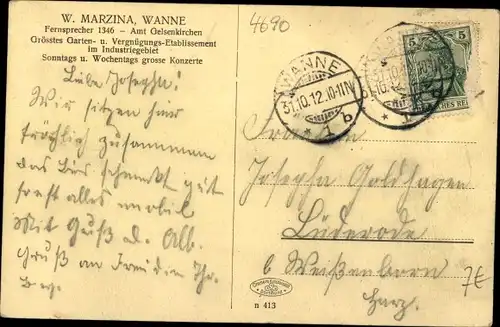 W. MARZINA, WANNE
Fernsprecher 1346 – Amt Gelsenkirchen
Grösstes Garten- u. Vergnügungs-Etablissement
im Industriegebiet
Sonntags u. Wochentags grosse Konzerte
Liebe Josepha!
Wir sitzen hier
fröhlich zusammen
das Bier schmeckt gut
sonst alles wohl
Mit Gruß d. Alb.
Gruß an
4690
WANNE
31.10.12.10-11N
* 1 b
5
5
Josepha Goldhagen
Lüderode
b Weißenborn
Harz.
7€
n 413